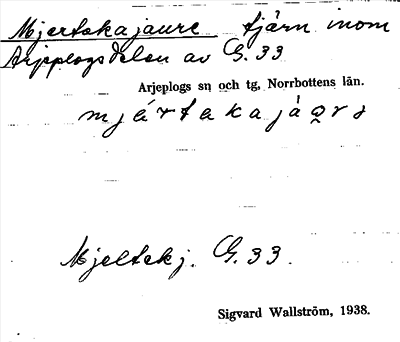 Mjertekajaure tjärn inom
Arjeplogsdelen av G. 33
Arjeplogs sn och tg, Norrbottens län.
mjártakajàọrə
Mjeltekj. G. 33.
Sigvard Wallström, 1938.